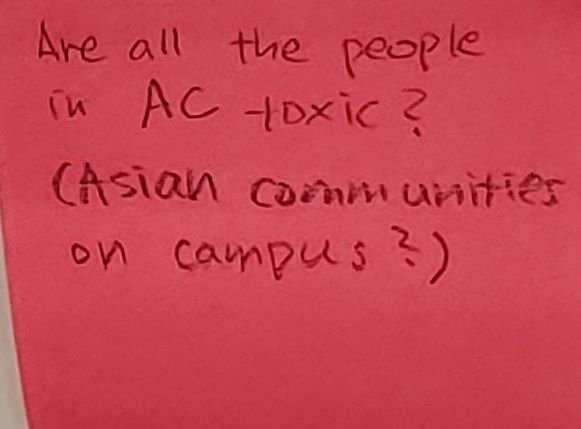 Are all the people
in AC toxic?
(Asian communities
on campus?)